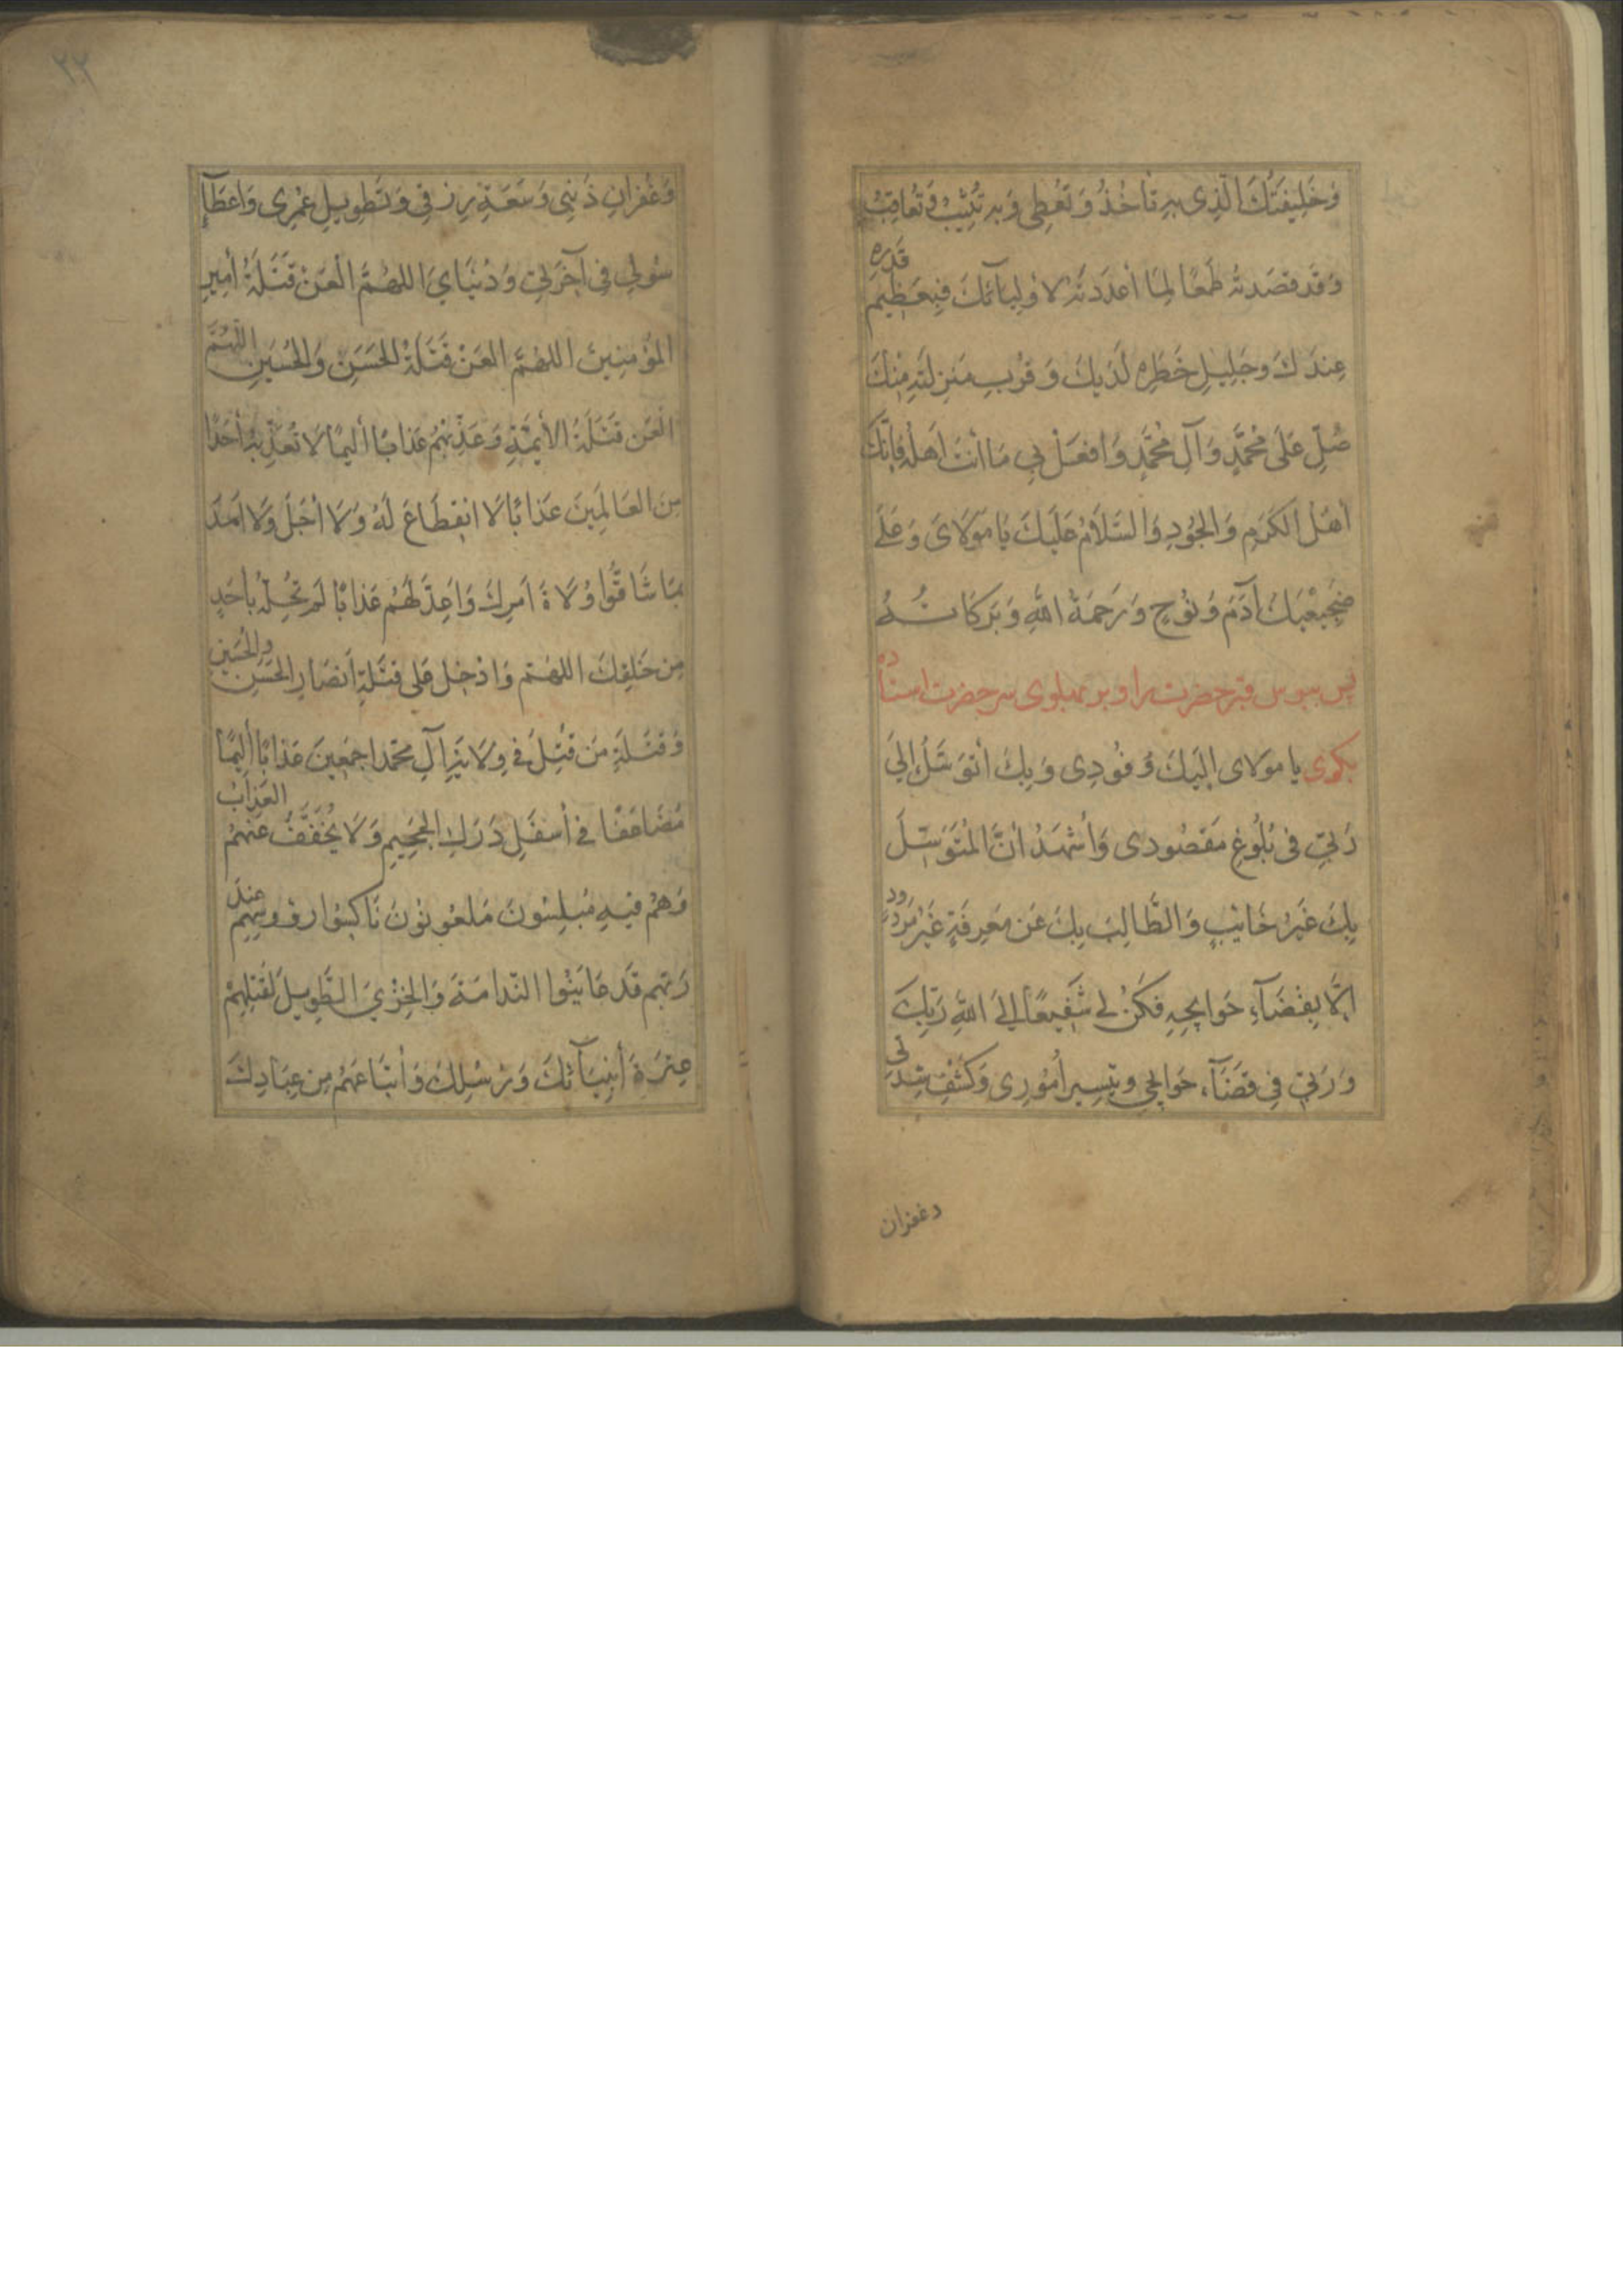 وَخَلِيفَتُكَ الَّذِى بِهِ تَأخُذُ وَ تُعْطِى وَ بِهِ تُثِيبُ وَ تُعَاقِبُ
وَ قَد قَصَدتُهُ طَمَعًا لِمَا أعدَدتَهُ لأولِيآئكَ فَبِعَظِيمِ قَدرِهِ
عِندَكَ وجَلِيلِ خَطَرِهِ لَدَيكَ وَ قُرْبِ مَنزِلَتِهِ مِنْكَ
صَلِّ عَلَى مُحَمَّدٍ وَ آلِ مُحَمَّدٍ وَ افعَلْ بِي مَا أنْتَ اَهلُهُ فَإنَّكَ
اَهْلُ الكَرَمِ وَ الجُودِ وَ السَّلاَمُ عَلَيكَ يَا مَوْلاَىَ وَ عَلَى
ضَجِيعَيكَ آدَمَ وَ نُوحٍ وَ رَحمَةُ اللهِ وَ بَرَكَاتُهُ
پس ببوس قبر حضرت را و بر پهلوى سر حضرت استاده
بگوى يا مولاى إلَيكَ وُفُودِى وَ بِكَ أتَوَسَّلُ إلَى
رَبِّي فى بُلُوغِ مَقصُودِى وَ أشْهَدُ أنَّ المُتَوَسِّلَ
بِكَ غَيرُ خَائبٍ وَ الطَّالِبَ بِكَ عَن مَعرِفَةٍ غَيرُ مَردُودٍ
إلَّا بِقَضَآءِ حَوايِجِهِ فَكُنْ لِي شَفِيعًا إلَى اللهِ رَبِّكَ
وَ رَبِّي فِي قَضَآءِ حَوايِجِي و تَيسِيرِ أُمُورِى وَ كَشْفِ شِدَّتِي
وغفران
٢٢
وَ غُفرَانِ ذَنْبِى وَ سَعَةِ رِزقِى وَ تَطوِيلِ عُمْرِى وَ اعطَآءِ
سُولِي فِي آخِرَتِي وَ دُنيَايَ اللهُمَّ الْعَنْ قَتَلَةَ أمِيرِ
المُؤمِنِينَ اللهُمَّ العَنْ قَتَلَةَ الحَسَنِ وَ الحُسَينِ اللّهُمَّ
العَن قَتَلَةَ الأئِمَّةِ وَ عَذِّبْهُم عَذابًا أليمًا لاَ تُعَذِّبُهُ أحَدًا
مِنَ العَالَمِينَ عَذابًا لاَ انقِطَاعَ لَهُ وَ لاَ أجَلَ وَلا اَمَدَ
بِمَا شَاقُّوا وُلاَةَ اَمرِكَ وَ اَعِدَّ لَهُم عَذابًا لَم تُحِلَّهُ بأحَدٍ
مِن خَلقِكَ اللهُمَّ وَ ادْخِل عَلى قَتَلَةِ اَنصَارِ الحَسَنِ والحُسَينِ
وَ قَتَلَةِ مَن قُتِلَ فى وِلاَيَةِ آلِ مُحَمَّد اجمَعِينَ عَذابًا أليمًا
مُضَاعَفًا فى أسفَلِ دَرَكِ الجَحِيمِ وَ لاَ يُخَفَّفُ عَنهُمُ العَذابُ
وَ هُمْ فِيهِ مُبلِسُونَ مَلعُونُونَ نَاكِسُوا رؤوسِهِم عِندَ
رَبِّهِم قَد عَايَنُوا النَّدامَةَ وَ الخِزْيَ الطَّوِيلَ لِقَتلِهِمْ
عِترَةَ أنبِيَآئكَ وَ رُسُلِكَ وَ أتبَاعَهُم مِن عِبَادِكَ